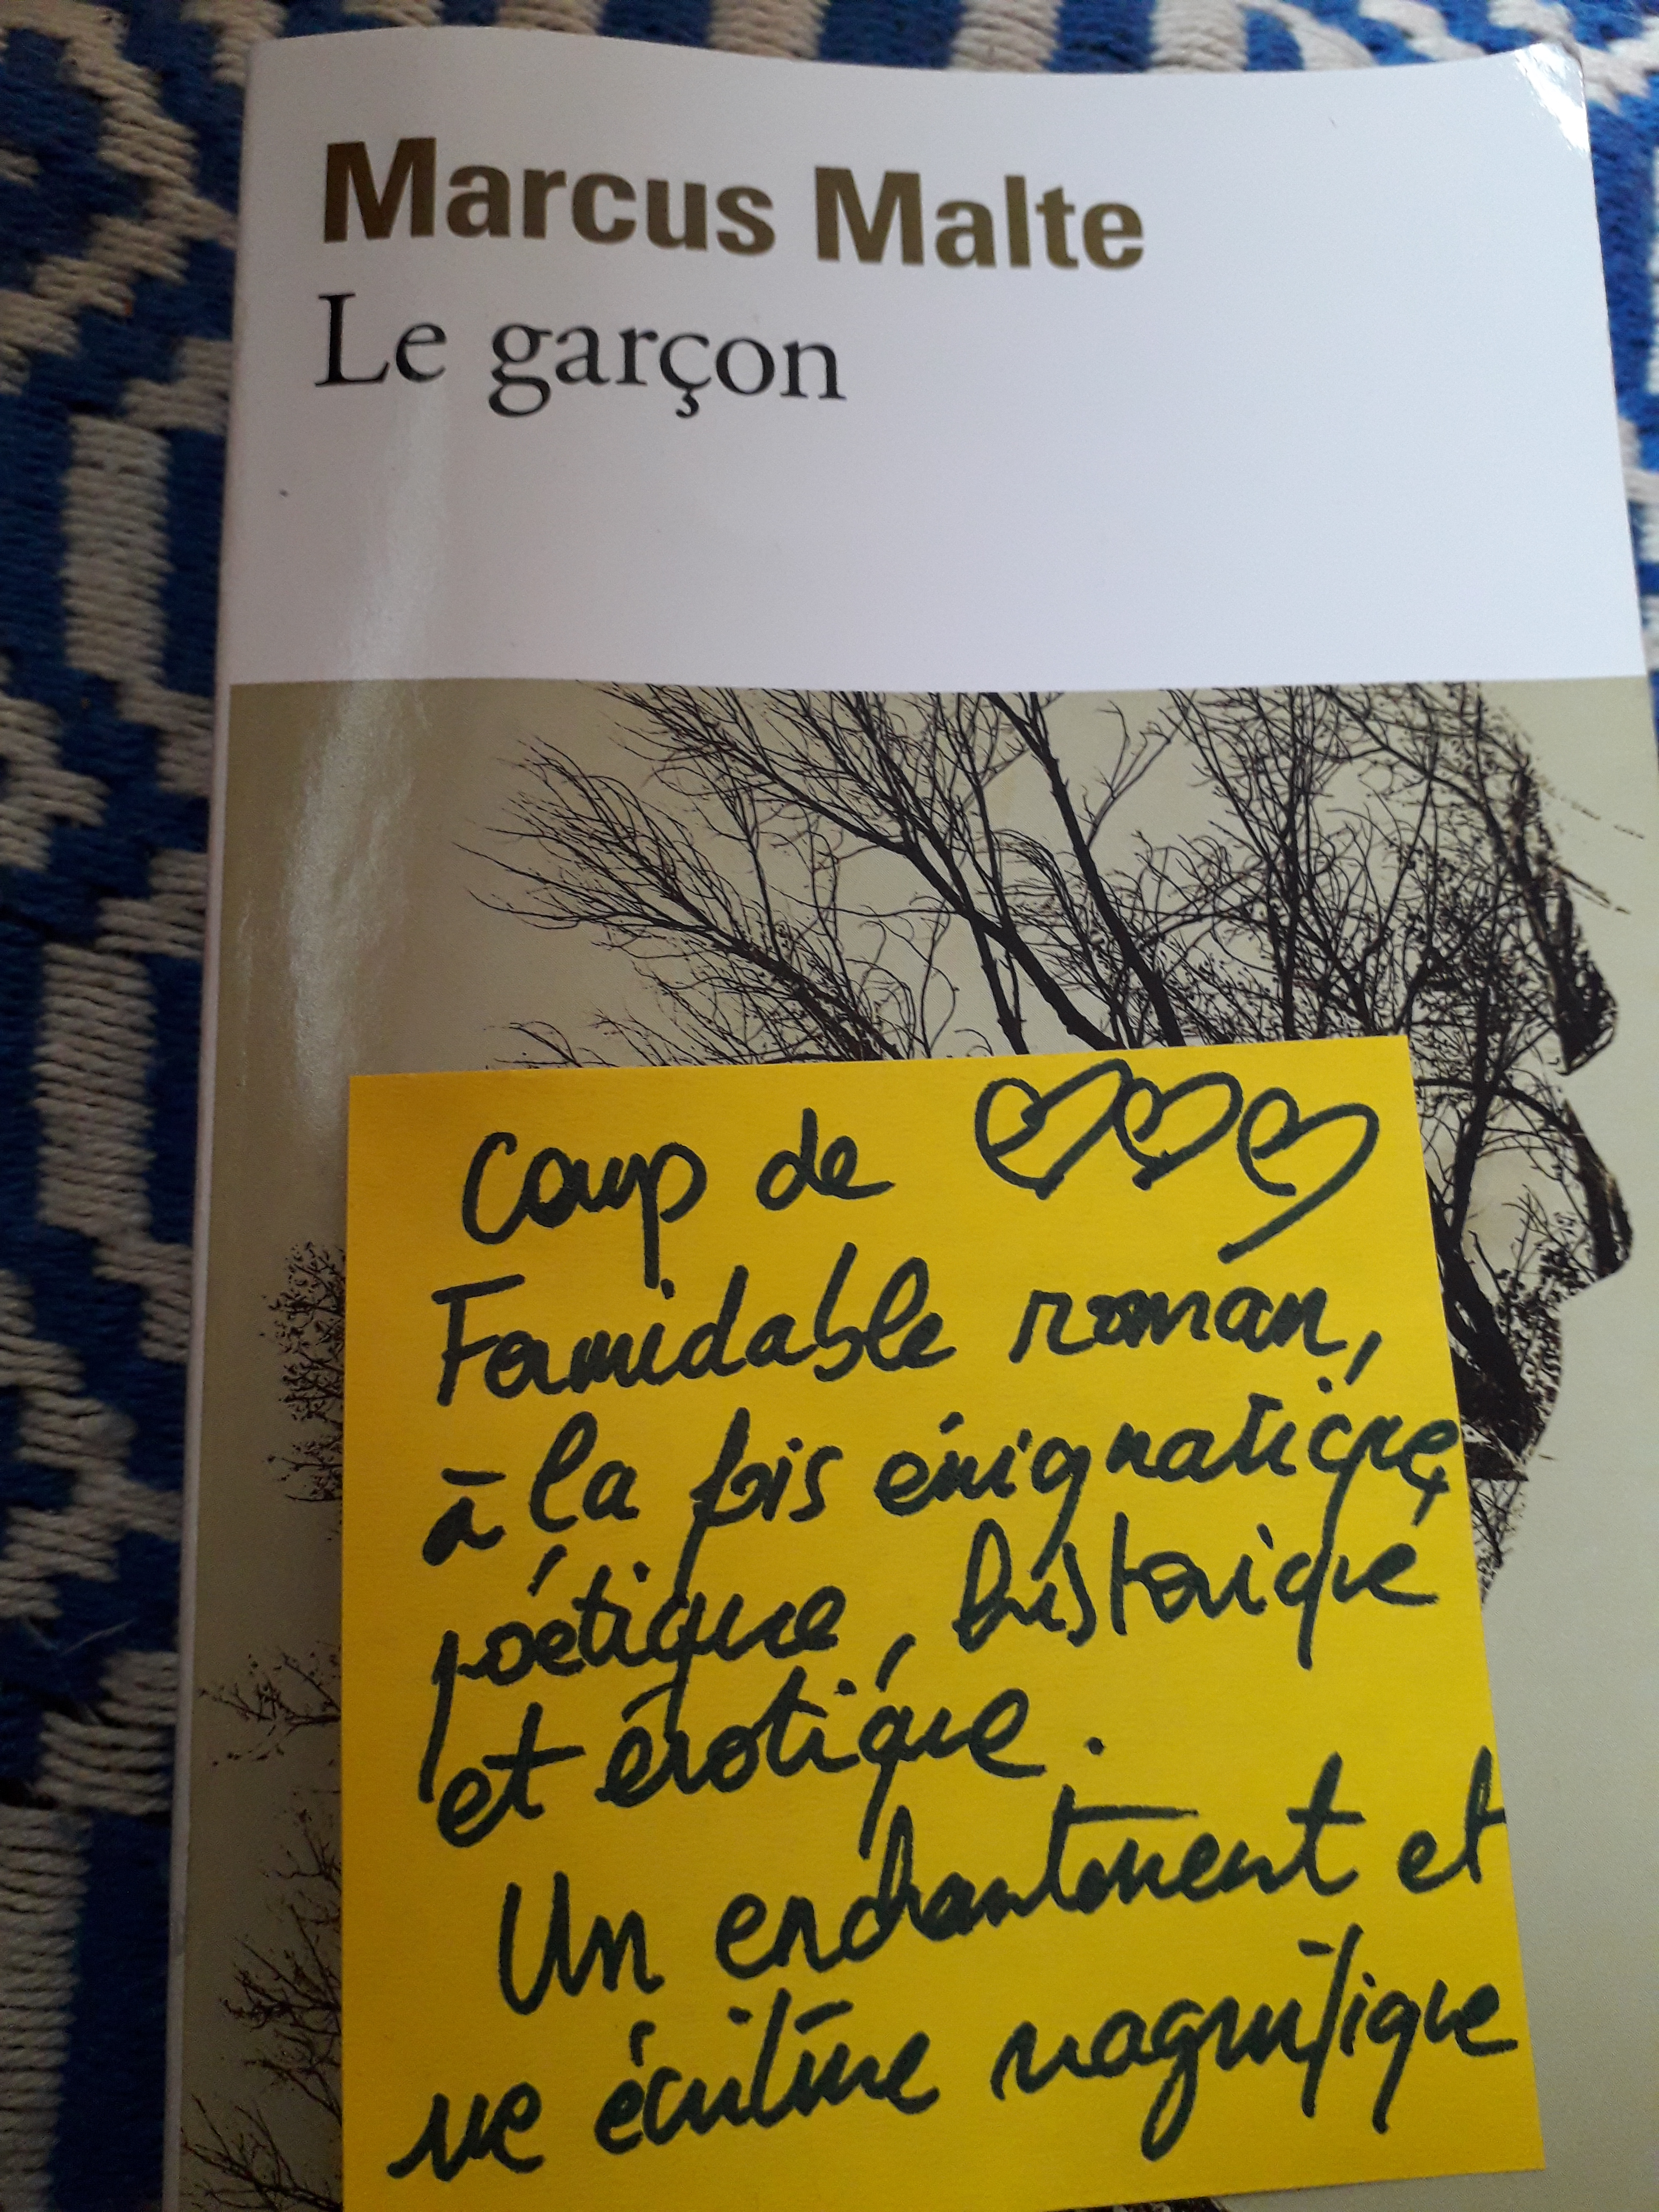 Marcus Malte
Le garçon
Coup de
Formidable roman,
à la fois énigmatique,
poétique, historique
et érotique.
Un enchantement et
une écriture magnifique